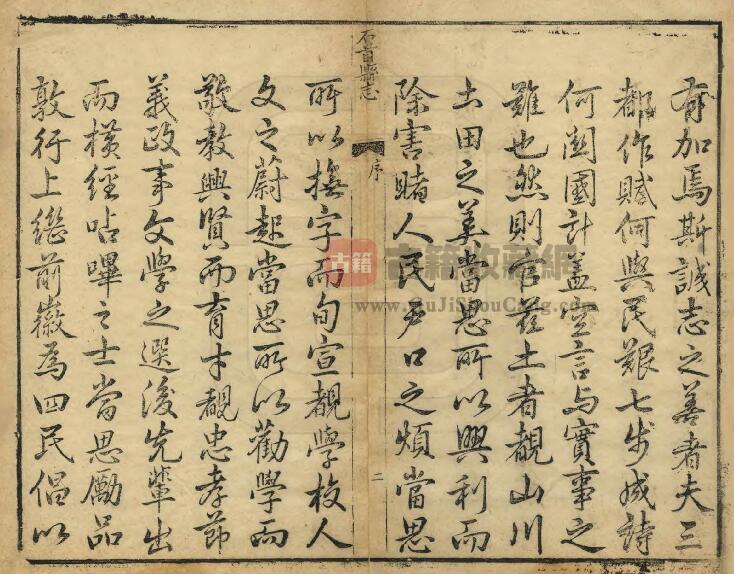 有加焉斯誠志之善者夫三
都作賦何與民艱七步成詩
何關國計蓋空言與實事之
難也然則官茲土者覩山川
土田之美當思所以興利而
除害睹人民戶口之煩當思
石首縣志
序
二
所以撫字而旬宣覩學校人
文之蔚起當思所以勸學而
敬敎興賢而育才覩忠孝節
義政事文學之選後先輩出
而橫經呫嗶之士當思勵品
敦行上繼前徽為四民倡以
古籍
古籍收藏網
www.GuJiShouCang.com